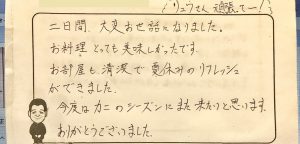 リュウさん 頑張って～！
二日間、大変お世話になりました。
お料理とっても美味しかったです。
お部屋も清潔で夏休みのリフレッシュ
ができました。
今度はカニのシーズンにまた来たいと思います。
ありがとうございました。